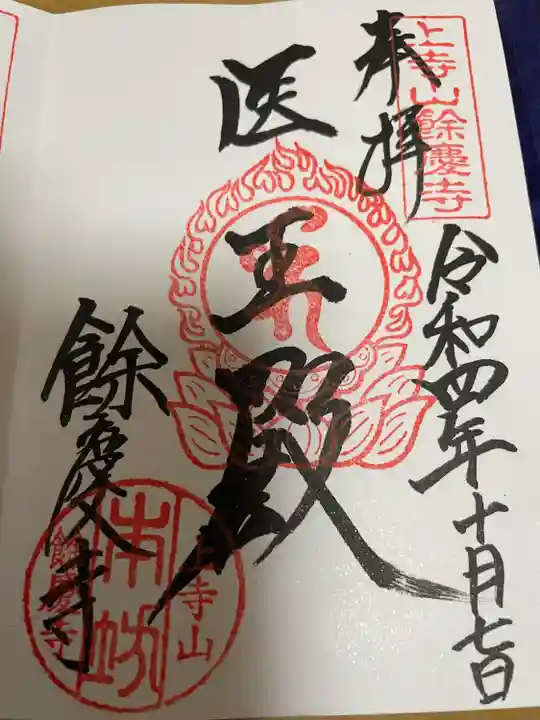 上寺山餘慶寺
奉拝
令和四年十月七日
医王殿
餘慶寺
上寺山
本坊
餘慶寺